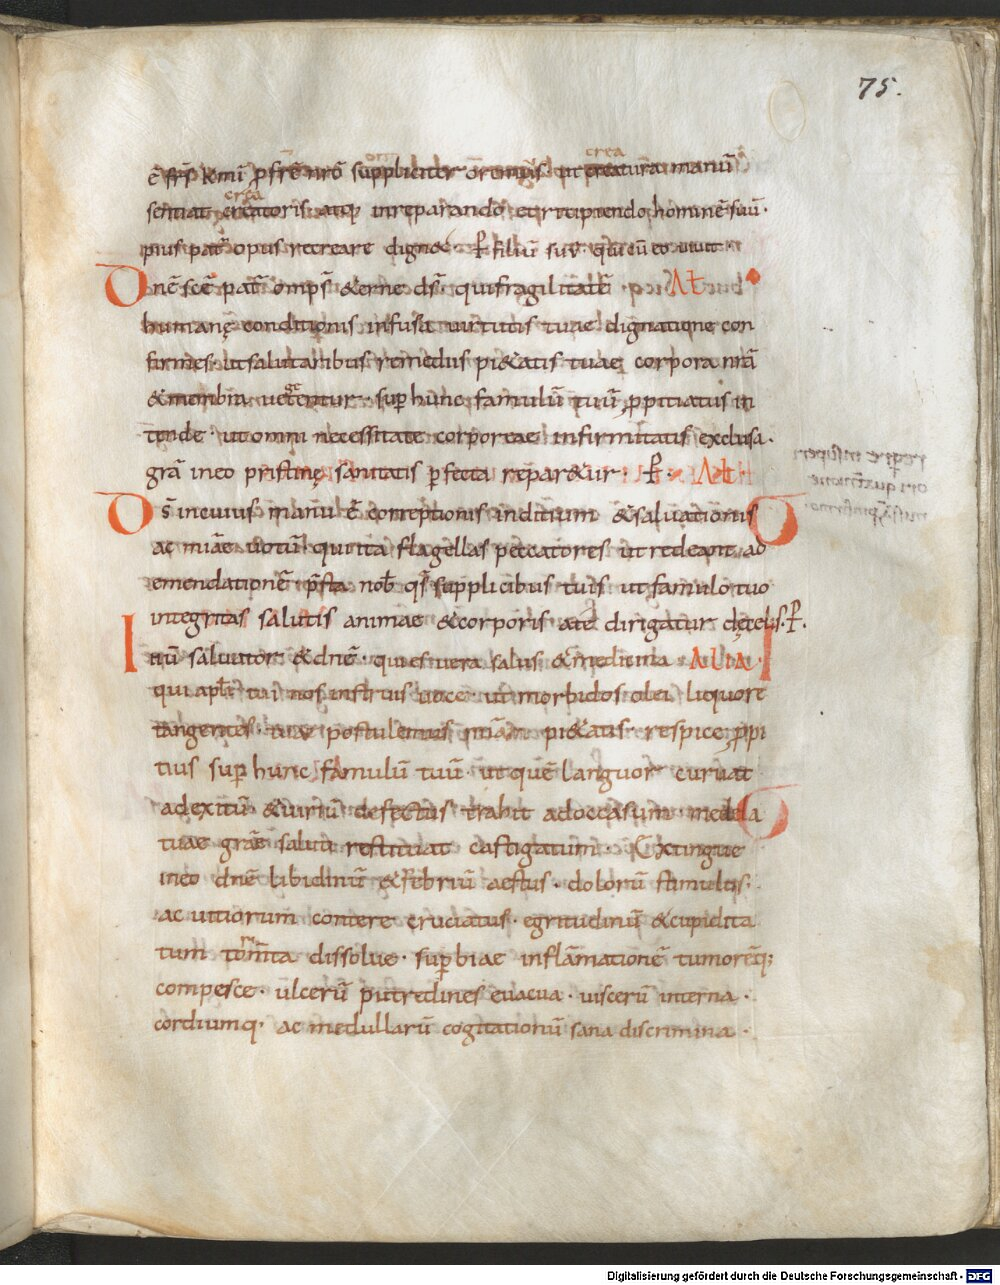 75.
ē frs̄ kmī p frē nrō suppliciter orēmus ut creatura manū
sentiat creatoris atq; inreparando et recipiendo hominē suū·
pius pat̄ opus recreare digne P filiū suū qui cū eo uiuit
Dnē scē pat̄ omps̄ &erne ds̄ qui fragilitatē Alt
humanę conditionis infusa uirtutis tuae dignatione con
firmes· ut salutaribus remediis pi&atis tuae corpora nrā
&membra uegetentur· sup hunc famulū tuū ppitiatus in
tende· ut omni necessitate corporeae infirmitatis exclusa·
grā in eo pristinę sanitatis pfecta repar&ur· P· Alt
Ds̄ in cuius manū ē correptionis inditium &saluationis
ac miāe uotū qui ita flagellas peccatores ut redeant ad
emendationē· pſta nob̄ qs̄ supplicibus tuis ut famulo tuo
integritas salutis animae &corporis a te dirigatur de celis· P·
Inū saluator &dnē· qui es uera salus &medicina ALIA·
qui apłi tui nos instruis uoce· ut morbidos olei liquore
tangentes· tuae postulemus pi&atis· respice ppi
tius sup hunc famulū tuū· ut quē languor curuat
ad exitū &uiriū defectus trahit ad occasum· medela
tuae grāe saluti restituat castigatum· Extingue
in eo dnē libidinū &febriū aestus· dolorū stimulus·
ac uitiorum contere cruciatus· egritudinū &cupidita
tum tormīta dissolue· supbiae inflāmationē tumorēq;
compesce· ulcerū putredines euacua· uiscerū interna·
cordiumq· ac medullarū cogitationū sana discrimina·
Digitalisierung gefördert durch die Deutsche Forschungsgemeinschaft - DFG